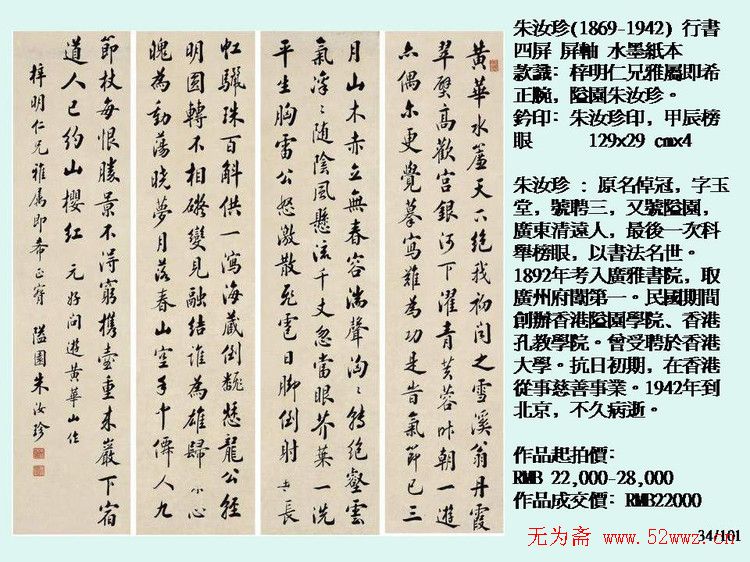 黃華水簾天下絕我初聞之雪溪翁丹霞
翠壁高歡宮銀河下濯青芙蓉昨朝一遊
亦偶尔更覺摹寫難為功是皆氣節已三
月山木赤立無春容湍聲洶〻轉絕壑雲
氣浮〻随陰風懸流千丈忽當眼芥蒂一洗
平生胸雷公怒激散飛雹日脚倒射垂長
虹驪珠百斛供一瀉海藏倒翻愁龍公輕
明圓轉不相礙變見融結誰為雄歸來心
魄為動蕩曉夢月落春山空手中僊人九
節杖每恨勝景不得窮攜壺重來巖下宿
道人已約山櫻紅 元好問遊黃華山作
梓明仁兄雅属即希正腕 隘園朱汝珍
朱汝珍(1869-1942) 行書
四屏 屏軸 水墨紙本
款識: 梓明仁兄雅屬即希
正腕, 隘園朱汝珍。
鈐印: 朱汝珍印, 甲辰榜
眼 129x29 cmx4
朱汝珍 : 原名倬冠, 字玉
堂, 號聘三, 又號隘園,
廣東清遠人, 最後一次科
舉榜眼, 以書法名世。
1892年考入廣雅書院, 取
廣州府闈第一。民國期間
創辦香港隘園學院、香港
孔教學院。曾受聘於香港
大學。抗日初期, 在香港
從事慈善事業。1942年到
北京, 不久病逝。
作品起拍價:
RMB 22,000-28,000
作品成交價: RMB22000
34/101
无为斋 www.52wwz.cn